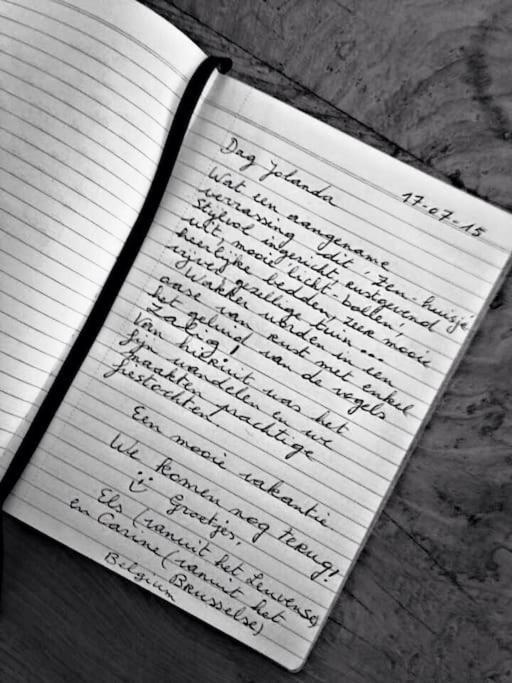 17-07-15
Dag Jolanda
Wat een aangename
verrassing dit 'Zen-huisje'
Stijlvol ingericht, rustgevend
wit, mooie licht-bollen!
heerlijke bedden, zeer mooie
vrijwel gezellige tuin...
Wakker worden in een
oase van rust met enkel
het geluid van de vogels
Zalig!
Van hieruit was het
fijn wandelen en we
maakten prachtige
fietstochten.
Een mooie vakantie
We komen nog terug!
Groetjes.
Els (vanuit het Leuvense)
en Carine (vanuit het
Brusselse)
Belgium